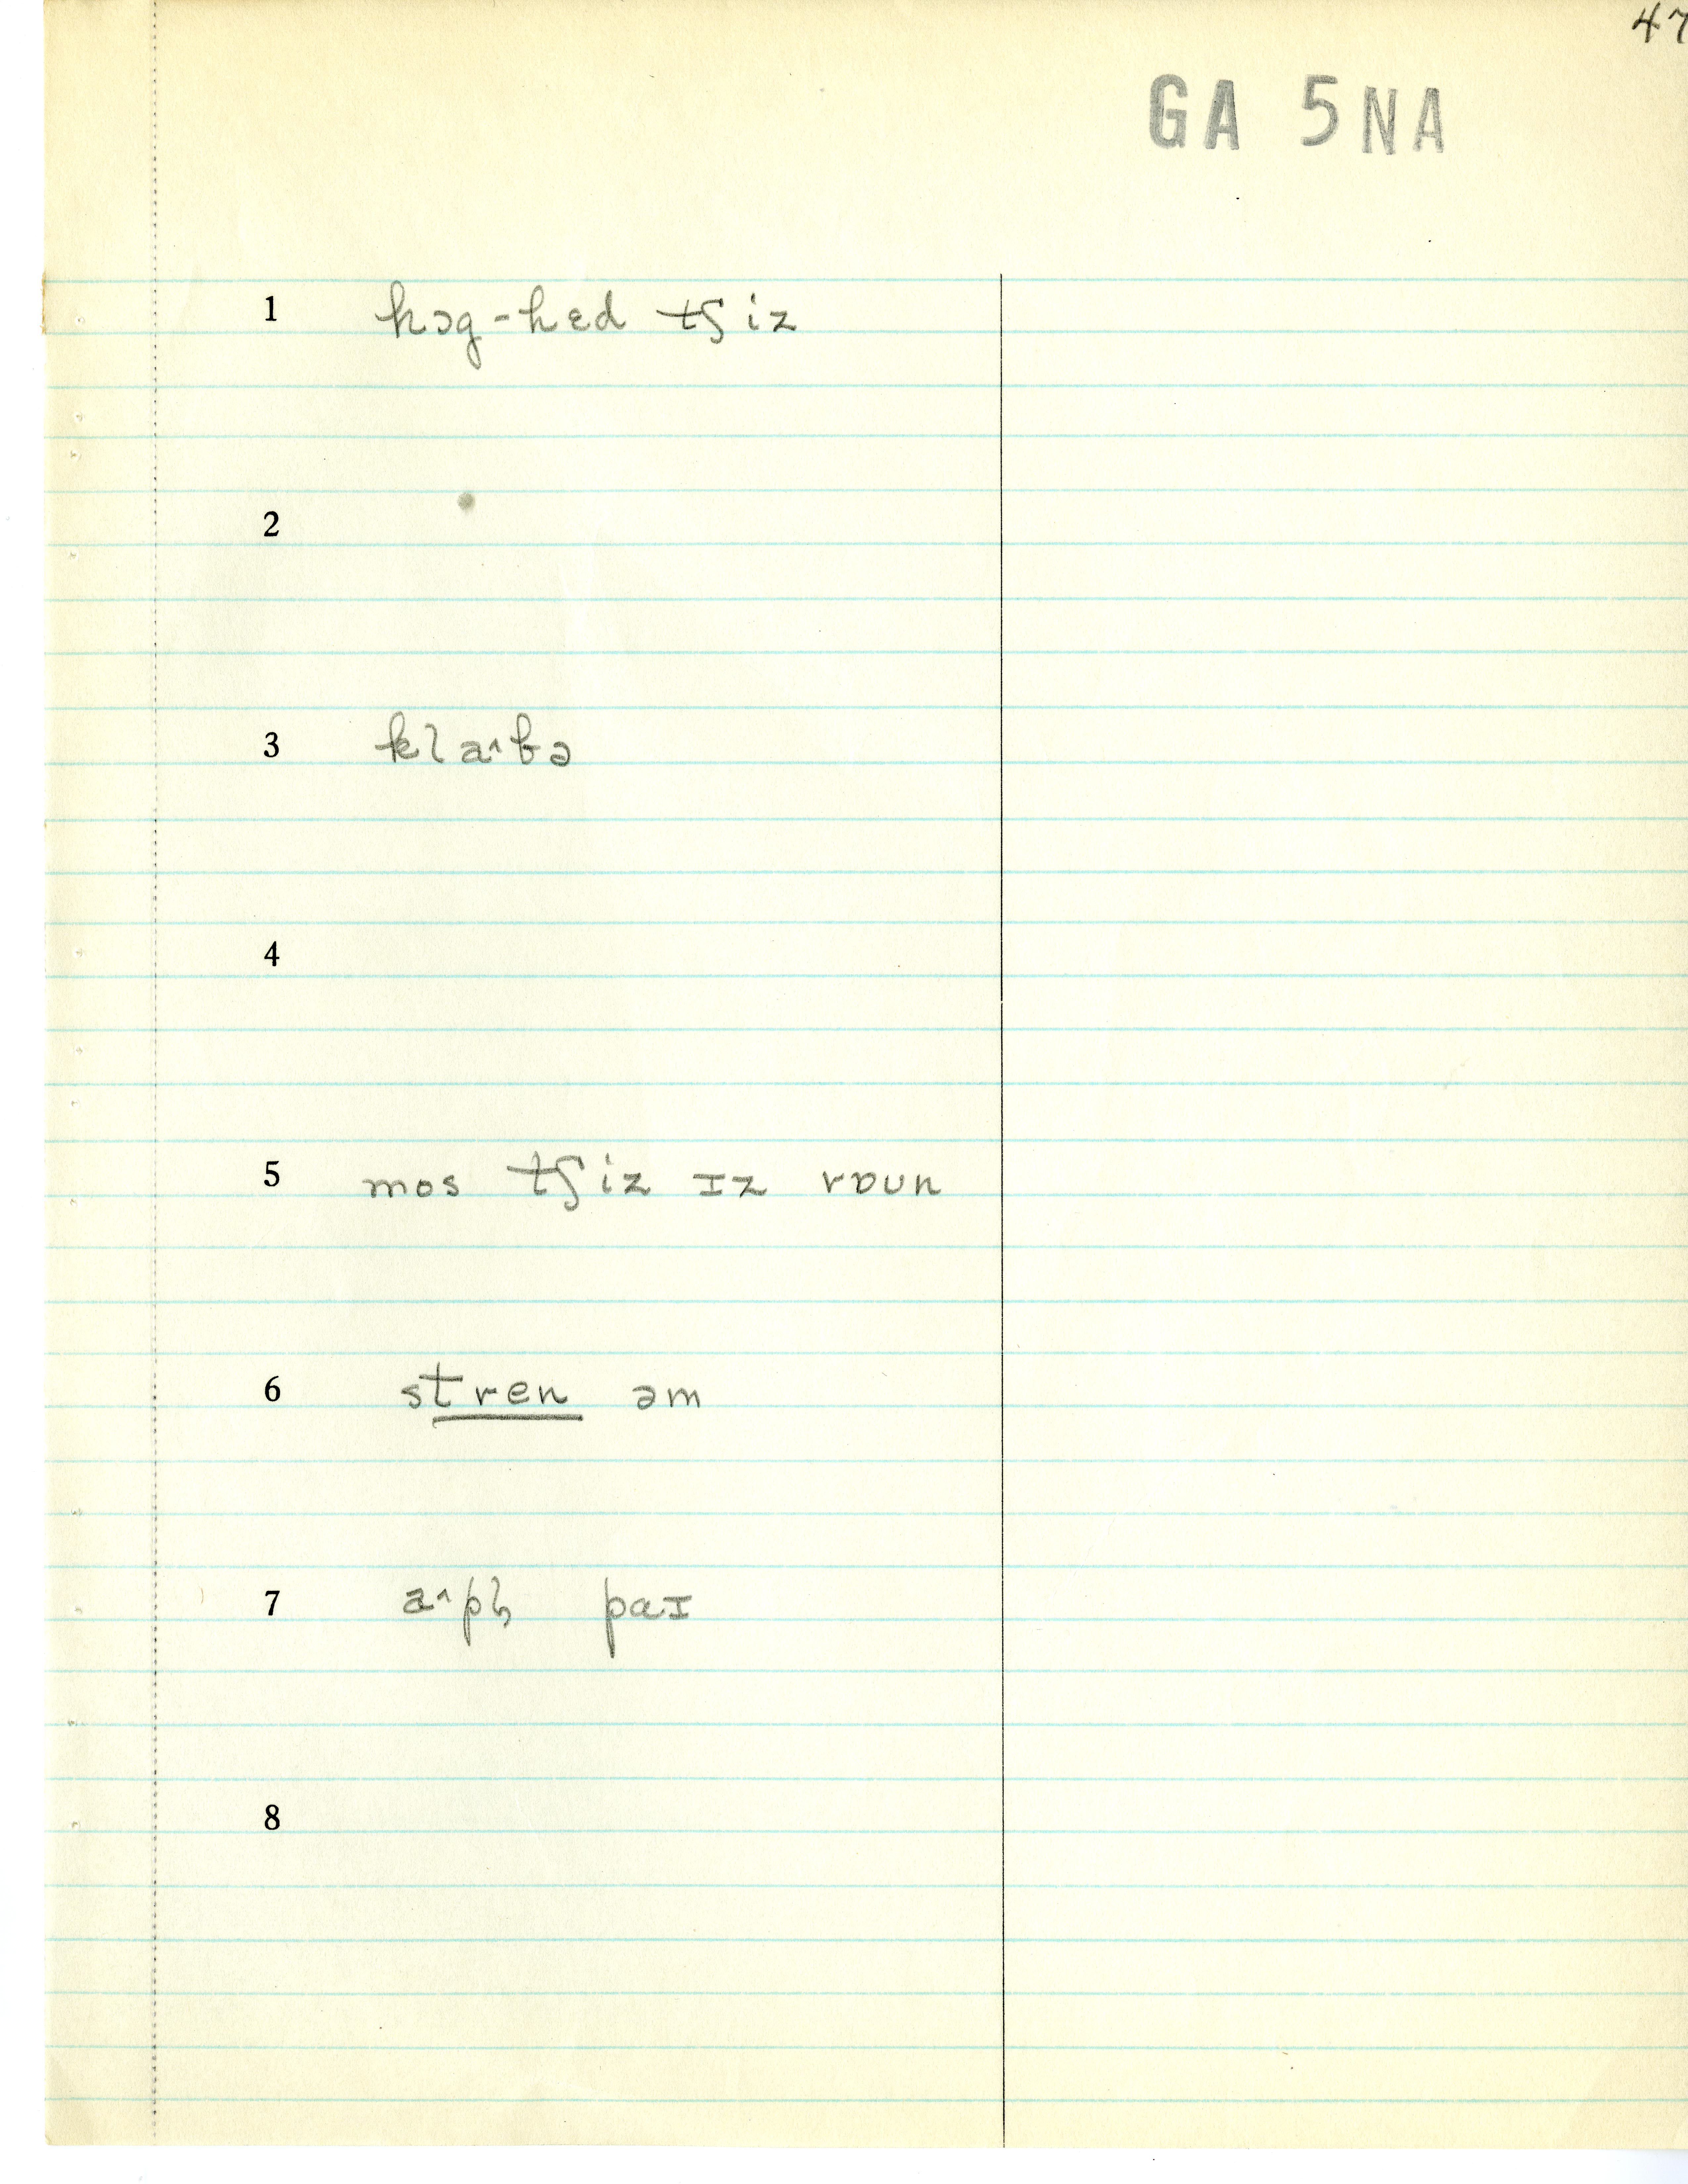 47
GA 5NA
1 hɔg-hɛd tʃiz
2
3 klaˆbə
4
5 mos tʃiz ɪz rɒun
6 stren əm
7 aˆpl̩ paɪ
8